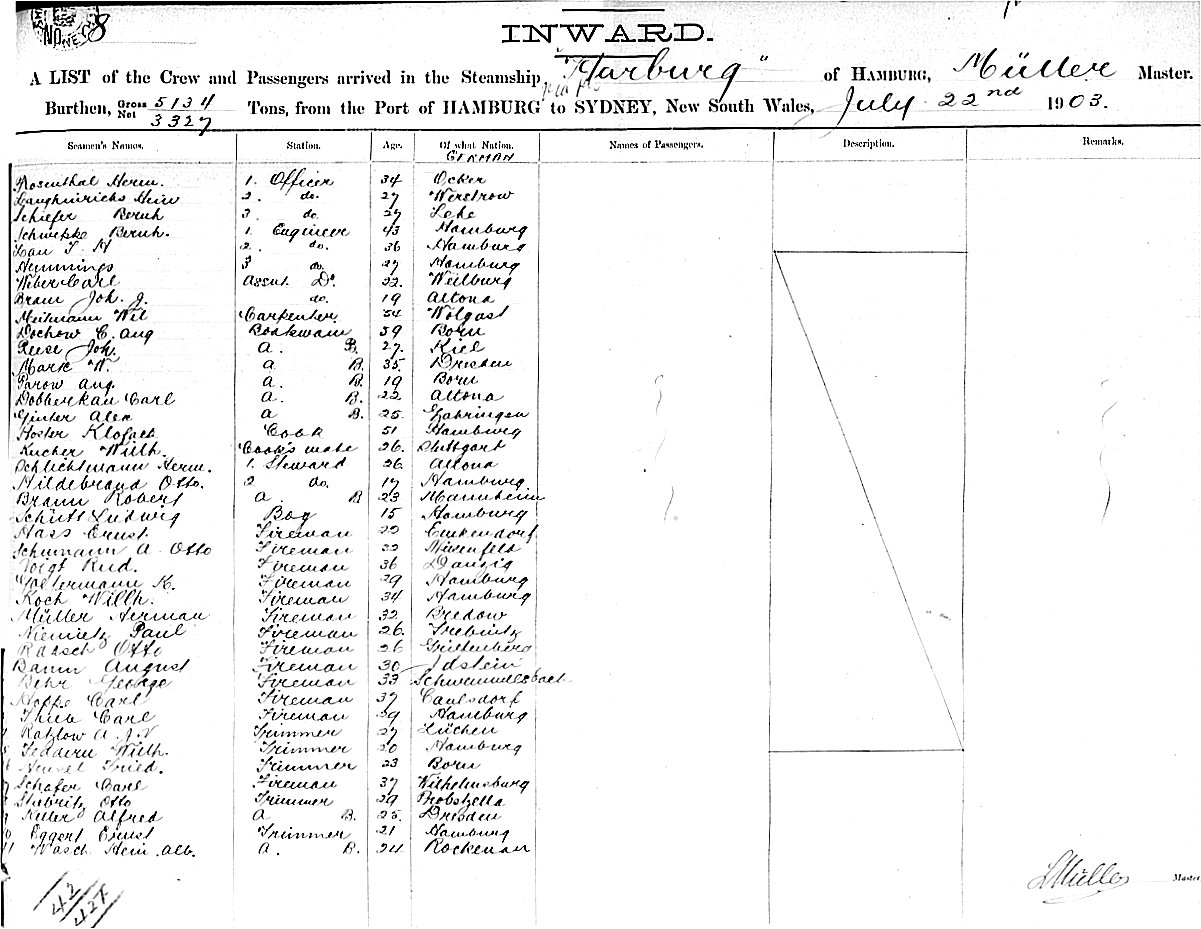 No 8
INWARD.
A LIST of the Crew and Passengers arrived in the Steamship, "Harburg" of HAMBURG, Müller Master.
Burthen, Gross 5134 Net 3327 Tons, from the Port of HAMBURG to SYDNEY, New South Wales, July 22nd 1903.
Seamen's Names. Station. Age. Of what Nation. Names of Passengers. Description. Remarks.
GERMAN
Rosenthal Herm. 1. Officer 34 Ocker
Laughinrichs Hein 2. do. 27 Werstrow
Schiefer Bernh 3 do. 27 Lehe
Schwepke Bernh. 1. Engineer 43 Hamburg
Lau T. H 2. do. 36 Hamburg
Hemmings 3 do. 27 Hamburg
Wiber Carl Assnt. Do. 22. Weilburg
Bram Joh. J. do. 19 Altona
Meilmann Wil Carpenter 54 Wolgast
Dochow C. Aug Boatswain 59 Born
Reese Joh. A. B. 27. Kiel
Mark W. A B. 35. Dresden
Parow Aug. A. B. 19 Born
Dobberkau Carl A. B. 22 Altona
Ginter Alex A B. 25.
Hoster Klofach Cook 51 Hamburg
Kucher Wilh. Cook's mate 26. Stuttgart
Schlichtmann Herm. 1. Steward 26 Altona
Hildebrand Otto. 2 do. 17 Hamburg.
Braun Robert A. B 23 Mannheim
Schütt Ludwig Boy 15 Hamburg
Hass Ernst. Fireman 22 Emkendorf
Schumann A. Otto Fireman 22
Voigt Rud. Fireman 36 Danzig
Woltermann K. Fireman 29 Hamburg
Koch Wilh. Fireman 34 Hamburg
Müller Herman Fireman 32 Bredow
Niemietz Paul Fireman 26. Trebnitz
Raasch Otto Fireman 26
Baum August Fireman 30 Idstein
Behr George Fireman 33
Hoppe Carl Fireman 37 Caulsdorf
Thiea Carl Fireman 29 Hamburg
Ratzlow A. J. V Trimmer 27 Lüchen
Feddern Wilh. Trimmer 20 Hamburg
Fried. Trimmer 23 Born
7 Schafer Carl Fireman 37 Wilhelmsburg
8 Stiebritz Otto Trimmer 29 Probstzella
9 Keller Alfred A B. 25. Dresden
0 Eggert Ernst Trimmer 21 Hamburg
11 Wasch Hein. Alb. A. B. 24 Rockenau
42
42+
L Müller Master